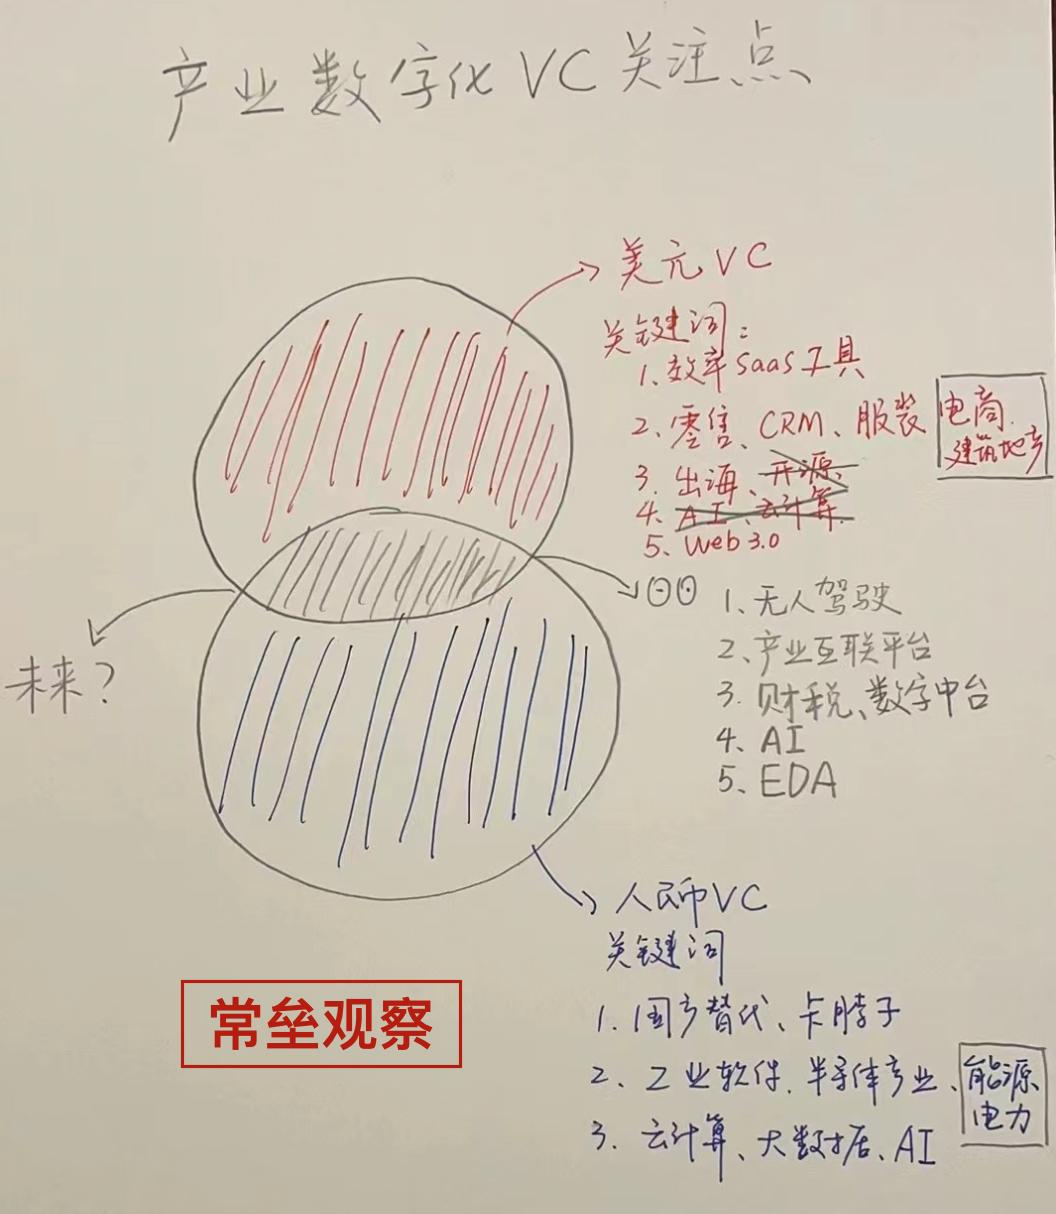 产业数字化VC关注点
美元VC
关键词:
1、效率SaaS工具
2、零售、CRM、服装
电商、
建筑地产
3、出海、开源、
4、AI、云计算
5、Web3.0
1、无人驾驶
2、产业互联平台
3、财税、数字中台
4、AI
5、EDA
未来？
人民币VC
关键词
1、国产替代、卡脖子
2、工业软件、半导体产业、
能源
电力
3、云计算、大数据、AI
常垒观察